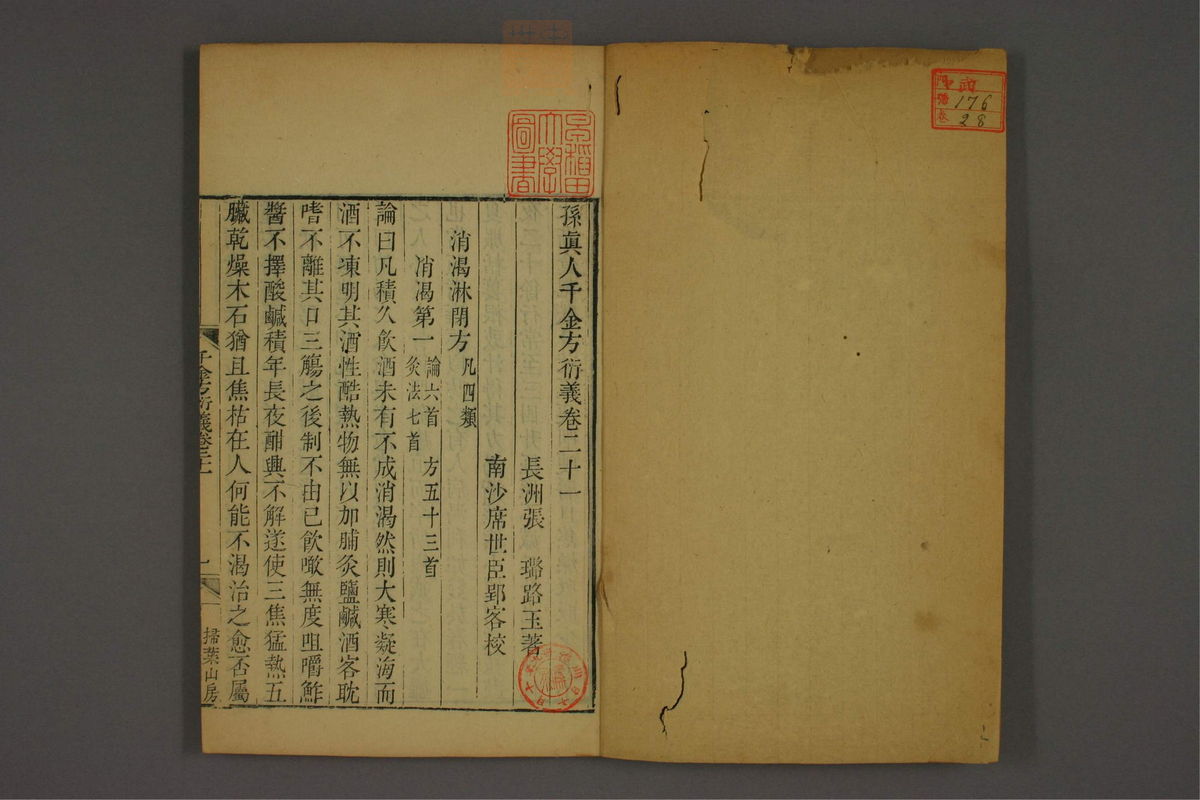 孫真人千金方衍義卷二十一
長洲張　璐路玉著
南沙席世臣郢客校
消渴淋閉方凡四類
消渴第一論六首　方五十三首
灸法七首
論曰凡積久飲酒未有不成消渴然則大寒凝海而
酒不凍明其酒性酷熱物無以加脯炙鹽鹹酒客耽
嗜不離其口三觴之後制不由己飲噉無度咀嚼鮓
醬不擇酸鹹積年長夜酣興不解遂使三焦猛熱五
臟乾燥木石猶且焦枯在人何能不渴治之愈否屬
千金方衍義卷二十一
一
掃葉山房
早稲田
大學
圖書
176
28